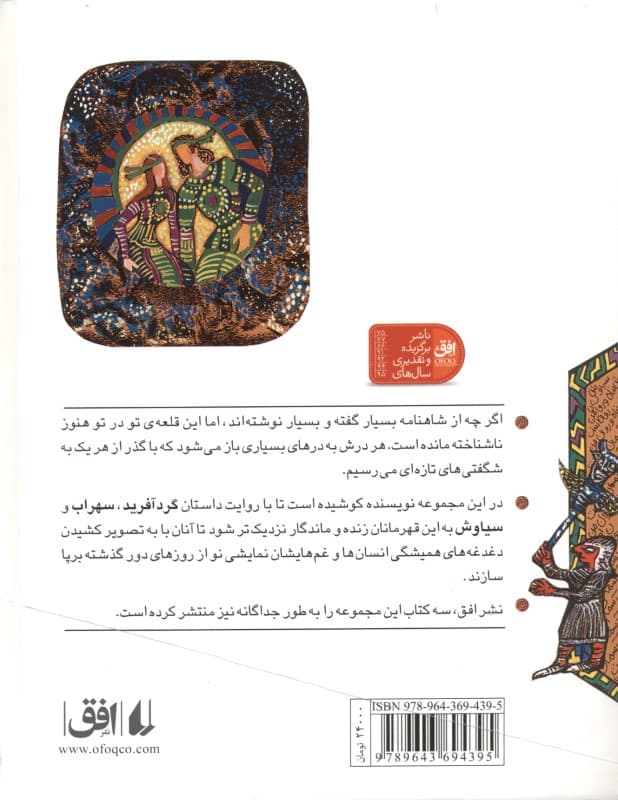 ناشر
برگزیده
و تقدیری
سال‌های
افق
OFOQ
اگر چه از شاهنامه بسیار گفته و بسیار نوشته‌اند، اما این قلعه‌ی تو در تو هنوز
ناشناخته مانده است. هر درش به درهای بسیاری باز می‌شود که با گذر از هر یک به
شگفتی‌های تازه‌ای می‌رسیم.
در این مجموعه نویسنده کوشیده است تا با روایت داستان گردآفرید، سهراب و
سیاوش به این قهرمانان زنده و ماندگار نزدیک‌تر شود تا آنان با به تصویر کشیدن
دغدغه‌های همیشگی انسان‌ها و غم‌هایشان نمایشی نو از روزهای دور گذشته برپا
سازند.
نشر افق، سه کتاب این مجموعه را به طور جداگانه نیز منتشر کرده است.
نشر افق
www.ofoqco.com
۲۴۰۰۰ تومان
ISBN 978-964-369-439-5
9 789643 694395